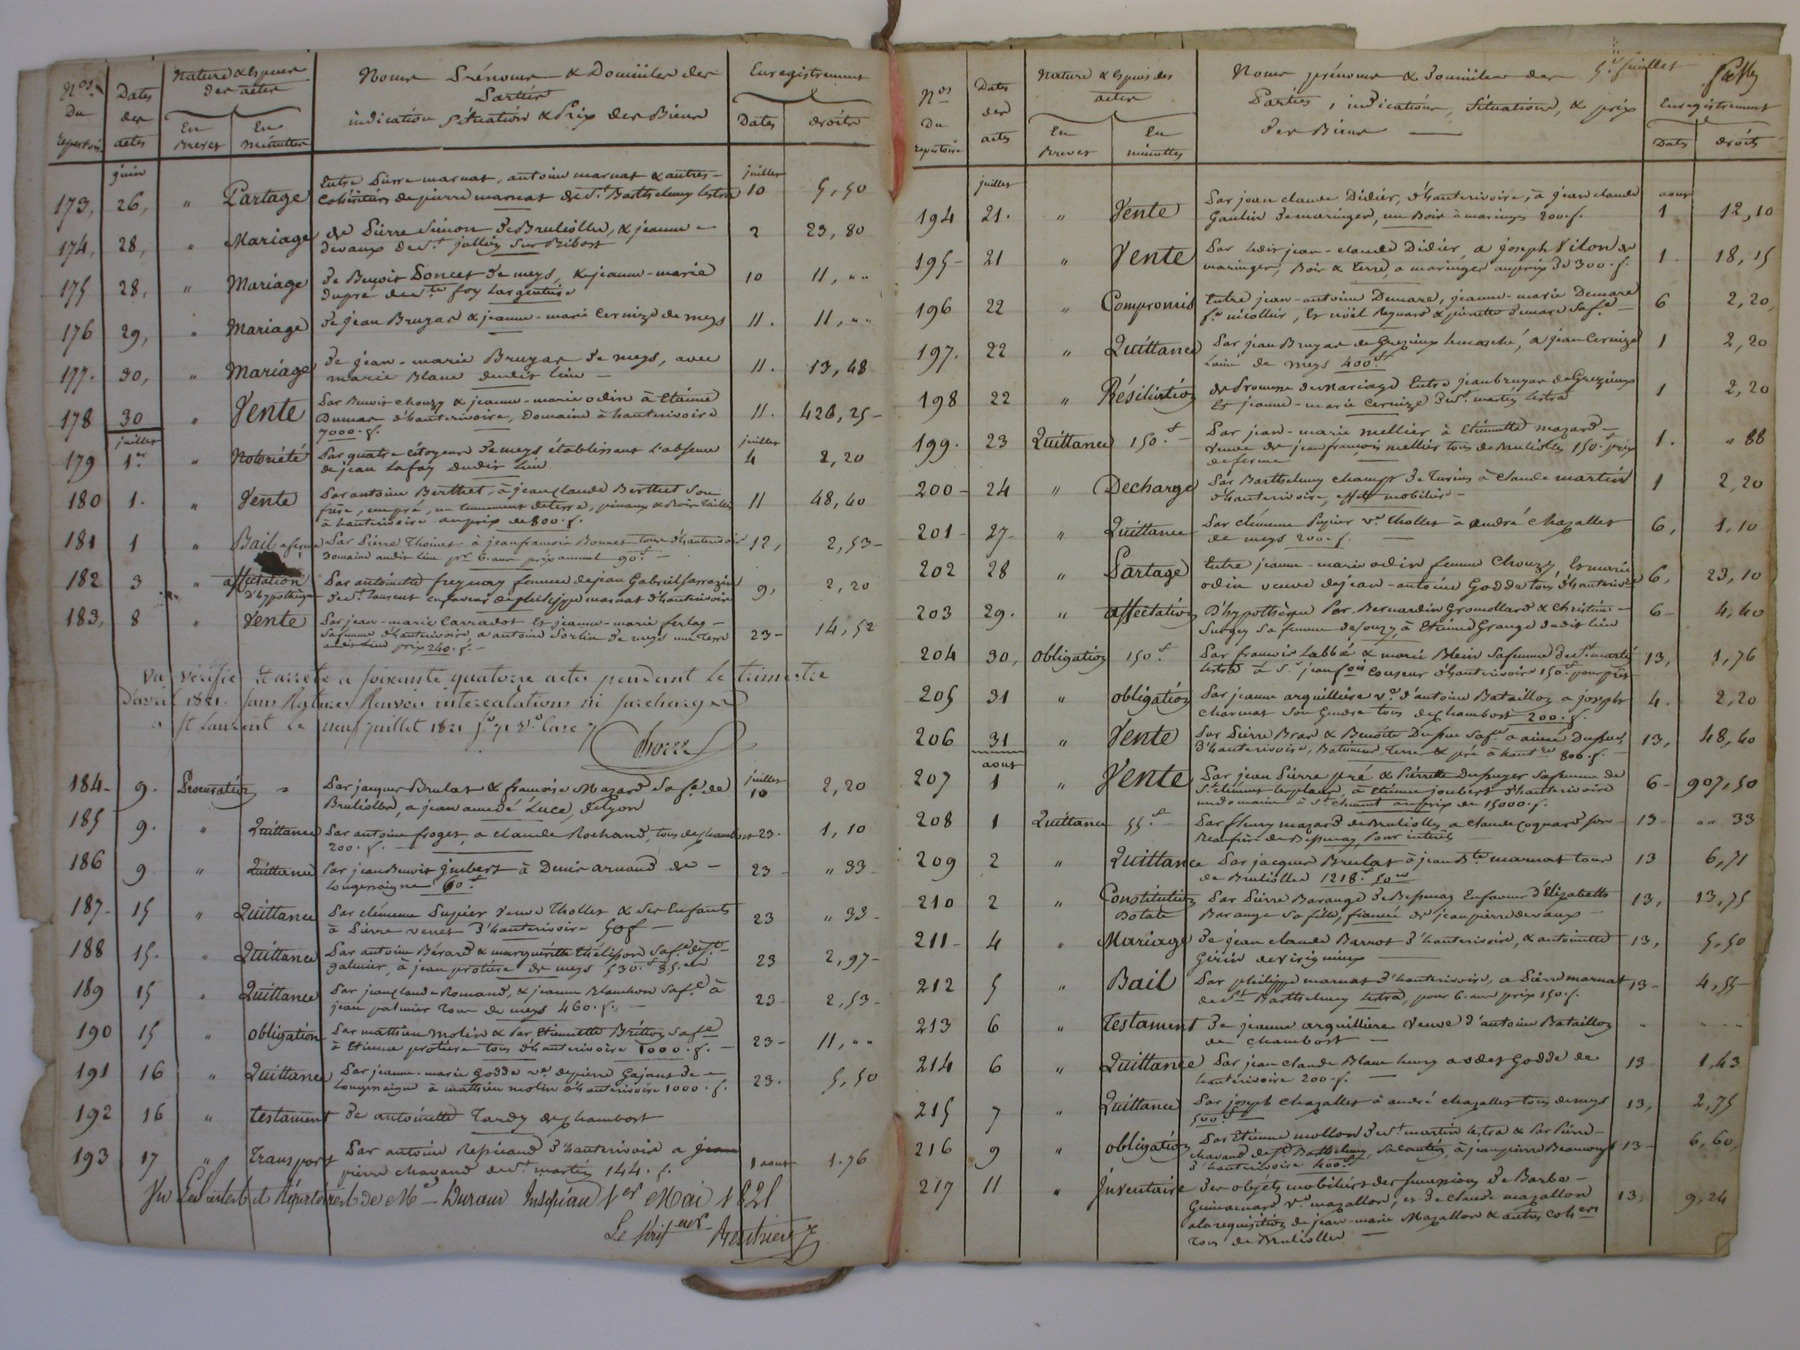 Nos. Du Repertoire
Dates des actes
Nature & Espèces des actes
En Brevet
En minuttes
Noms Prénoms & Domiciles des Parties
indication Situation & Prix des Biens
Enregistrement
Dates
droits
juin
juillet
173, 26, " Partage Entre Pierre marnat, antoine marnat & autres - 10 5,50
Cohéritiers de pierre marnat de St. Barthelemy lestra
174, 28, " Mariage de Pierre Simon de Bruliolles, & jeanne - 2 23,80
devaux de St. julien Sur Bibost
175 28, " Mariage de Benoit Poncet de meys, & jeanne-marie 10 11, " "
dupré de Ste foy Largentière
176 29, " Mariage de jean Bruyas & jeanne-marie Cernize de meys 11. 11, " "
177. 30, " Mariage de jean-marie Bruyas de meys, avec 11. 13,48
marie Blanc dudit lieu -
178 30 " Vente Par Benoit chouzy & jeanne-marie odin à Etienne 11. 426,25-
Dumas d'hauterivoire, Domaine à hauterivoire
7000. f.
juillet
juillet
179 1er " Notoriété Par quatre citoyens de meys, établissant l'absence 4 2,20
de jean Lafay dudit lieu
180 1. " Vente Par antoine Berthet, à jean Claude Berthet Son 11 48,40
frère, un pré, un tenement de terre,
à hauterivoire au prix de 800. f.
181 1 " Bail a ferme Par Pierre Thoinet à jean françois Bonnet tous d'hauterivoire 12, 2,53-
Domaine audit lieu pr. 6. ans prix annuel 90. f -
182 3 " affectation Par antoinette freynay femme de jean Gabriel Sarrazin 9, 2,20
d'hypothèque de St. laurent en faveur de philippe marnat d'hauterivoire
183, 8 " Vente Par jean-marie Carradot Et jeanne-marie ferlay - 23- 14,52
Sa femme d'hauterivoire, a antoine Sorlin de meys une Terre
audit lieu prix 240. f. -
Vu Vérifié & arrêté a soixante quatorze actes pendant le trimestre
D'avril 1821. sans Ratures Renvois intercalations ni surcharges
a St Laurent le neuf juillet 1821 fo. 71 Vo. Case 7
juillet
184- 9. Procuration " Par jacques Brulas & françoise Mazard Sa fe. de 10 2,20
Brulioles, a jean amedé Luce, de lyon
185 9. " Quittance Par antoine froget, a claude Rochand, tous de chambost 23. 1,10
200. f. -
186 9 " Quittance Par jean Benoit jmbert à Denis arnaud de - 23- " 33-
Longessaigne 60. f
187- 15 " Quittance Par clémence Pupier Veuve Thollet & Ses Enfants 23 " 33-
à Pierre venet d'hauterivoire 50f -
188 15. " Quittance Par antoine Bérard & marguerite thélisson Sa fe. de St. 23 2,97-
galmier, à jean protière de meys 530. f 85. c
189 15 " Quittance Par jean Claude Romand, & jeanne Blanchon Sa fe. à 23- 2,53-
jean palmier Tous de meys 460. f. -
190 15 " obligation Par mathieu molin & Par Etiennette Brétton Sa fe 23- 11, " "
à Etienne protière tous d'hauterivoire 1000. f. -
191 16 " Quittance Par jeanne-marie Godde ve. de pierre Gajant de - 23. 5,50
Longessaigne à mathieu molin d'hauterivoire 1000. f.
192 16 " testament de antoinette Tardy de chambost
193 17 " Transport Par antoine Repicaud d'hauterivoire a jean 1 aout 1.76
pierre chavand de St. martin 144. f.
Vu Les minutes et Répertoires de Me. Durand Jusqu'au 1er Mai 1821
Nos Du repertoire
Dates des actes
Nature & Espèces des actes
En Brevet
En minuttes
Noms prénoms & Domiciles des
Parties, indication, Situation, & prix
des Biens -
Enregistrement
Dates
droits
juillet
aout
194 21. " Vente Par jean claude Didier, d'hauterivoire, à jean claude 1 12,10
Gaulin de maringes, un Bois à maringes 200. f.
195- 21 " Vente Par ledit jean-claude Didier, a joseph Vilon de 1. 18,15
maringes, Bois & terre a maringes au prix de 300. f.
196 22 " Compromis Entre jean-antoine Demare, jeanne-marie Demare 6 2,20,
197. 22 " Quittance Par jean Bruyas de Grezieux lemarché, à jean Cernize 1 2,20
Lainé de meys 400. f
198 22 " Résiliation de Promesse de Mariage Entre jean bruyas de Grezieux 1 2,20
Et jeanne-marie Cernize de St. martin lestra
199. 23 Quittance 150. f - Par jean-marie mellier à Etiennette mazard - 1. " 88
veuve de jean françois mellier tous de Brulioles 150. f prix
de ferme -
200- 24 " Decharge Par Barthelemy champt de Turins à Claude martin 1 2,20
d'hauterivoire, effets mobiliers -
201- 27- " Quittance Par clémence Pupier ve. thollet à andré chazallet 6, 1,10
de meys 200. f. -
202 28 " Partage Entre jeanne-marie odin femme Chouzy, Et marie 6, 23,10
odin veuve de jean-antoine Godde tous d'hauterivoire
203 29. " affectation D'hypothèque Par Bernardin Gromollard & Christine - 6- 4,40
Sa femme de Souzy, à Etienne Grange dudit lieu
204 30, obligation 150. f Par françois Labbé & marie Blein Sa femme de St. martin 13, 1,76
lestra à Sr. jean fois. Couseur d'hauterivoire 150. f
205 31 " obligation Par jeanne arquillière ve. d'antoine Bataillon a joseph 4. 2,20
charmat Son Gendre tous de chambost 200. f.
206 31 " Vente Par Pierre Bras & Benoite Dupuy Sa fe. a aimé Dupuy 13, 48,40
d'hauterivoire, Batiment, Terre & pré à haut re 800. f. -
aout
207 1 " Vente Par jean Pierre pré & Pierrette Dupuyer Sa femme de 6- 907,50
St. clément les places, à Etienne joubert d'hauterivoire
un domaine à St. clément au prix de 15000. f.
208 1 Quittance 55. f Par fleury mazard de Brulioles a claude Coquard Son 13- " " 33
Beaufrère de Bessenay, Pour intérêts
209 2 " Quittance Par jacques Brulas à jean Bte marnas tous 13 6,71
de Brulioles 1218. f 50 c
210 2 " Constitution Par Pierre Barange de Bessenay En faveur d'Elizabeth 13, 13,75
Dotale Barange Sa fille, fiancée de jean pierre devaux -
211- 4 " Mariage de jean claude Barrot d'hauterivoire, & antoinette 13, 5,50
Girin de Virigneux -
212 5 " Bail Par philippe marnat d'hauterivoire, a Pierre marnat 13- 4,55-
de St. Barthelemy lestra, pour 6. ans prix 150. f.
213 6 " Testament de jeanne arquillière Veuve d'antoine Bataillon
de chambost -
214 6 " Quittance Par jean claude Blanc a odet Godde de 13- 1,43
hauterivoire 200. f. -
215 7 " Quittance Par joseph chazallet à andré chazallet tous de meys 13, 2,75
500. f
216 9 " obligation Par Etienne mollon de St. martin lestra & Par Pierre - 13- 6,60,
chavand de St. Barthelemy, Sa caution, à jean pierre Beaumont
d'hauterivoire 400. f
217 11 " Inventaire des objets mobiliers des successions de Barbe - 13, 9,24
ve. mazallon, et de claude mazallon
a la requisition de jean-marie Mazallon & autres Cohers
Tous de Brulioles -